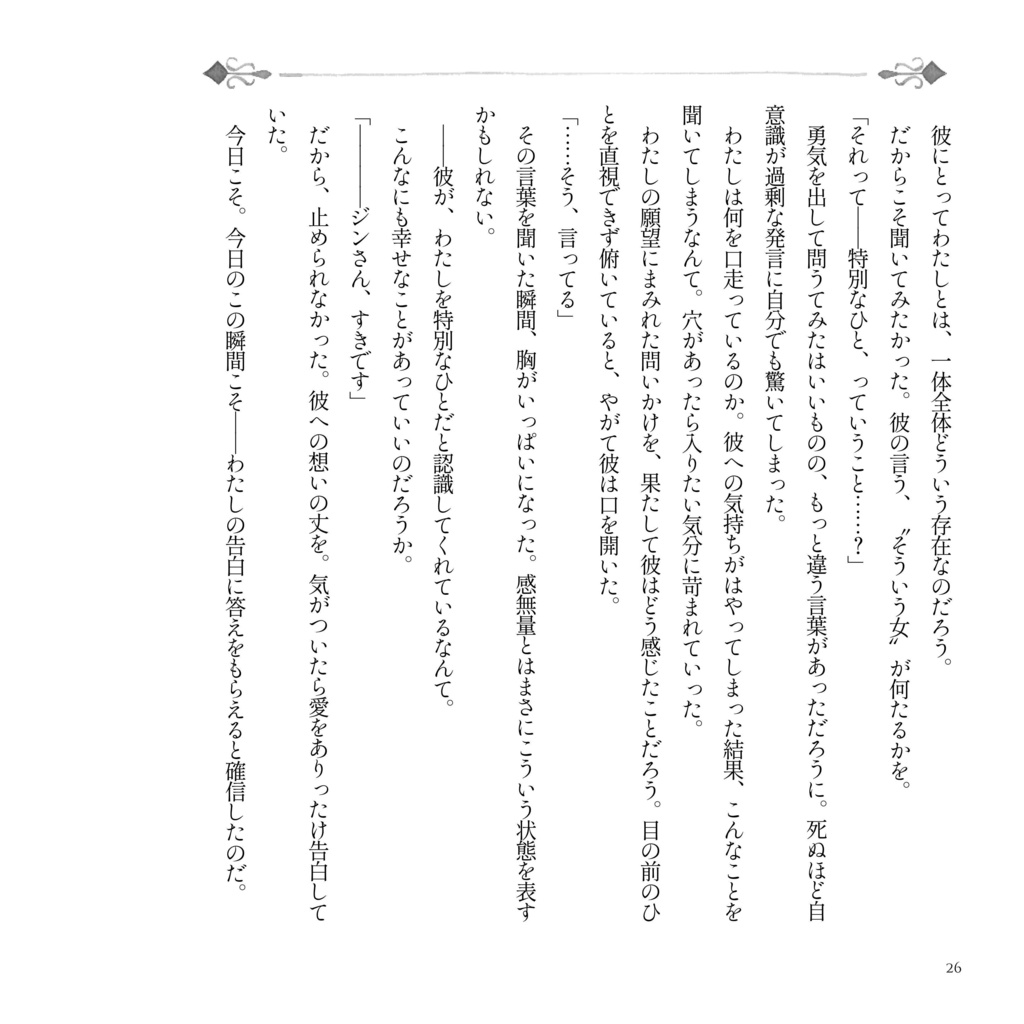 彼にとってわたしとは、一体全体どういう存在なのだろう。
だからこそ聞いてみたかった。彼の言う、〝そういう女〟が何たるかを。
「それって――特別なひと、っていうこと……?」
勇気を出して問うてみたはいいものの、もっと違う言葉があっただろうに。死ぬほど自
意識が過剰な発言に自分でも驚いてしまった。
わたしは何を口走っているのか。彼への気持ちがはやってしまった結果、こんなことを
聞いてしまうなんて。穴があったら入りたい気分に苛まれていった。
わたしの願望にまみれた問いかけを、果たして彼はどう感じたことだろう。目の前のひ
とを直視できず俯いていると、やがて彼は口を開いた。
「……そう、言ってる」
その言葉を聞いた瞬間、胸がいっぱいになった。感無量とはまさにこういう状態を表す
かもしれない。
――彼が、わたしを特別なひとだと認識してくれているなんて。
こんなにも幸せなことがあっていいのだろうか。
「――――ジンさん、すきです」
だから、止められなかった。彼への想いの丈を。気がついたら愛をありったけ告白して
いた。
今日こそ。今日のこの瞬間こそ――わたしの告白に答えをもらえると確信したのだ。
26